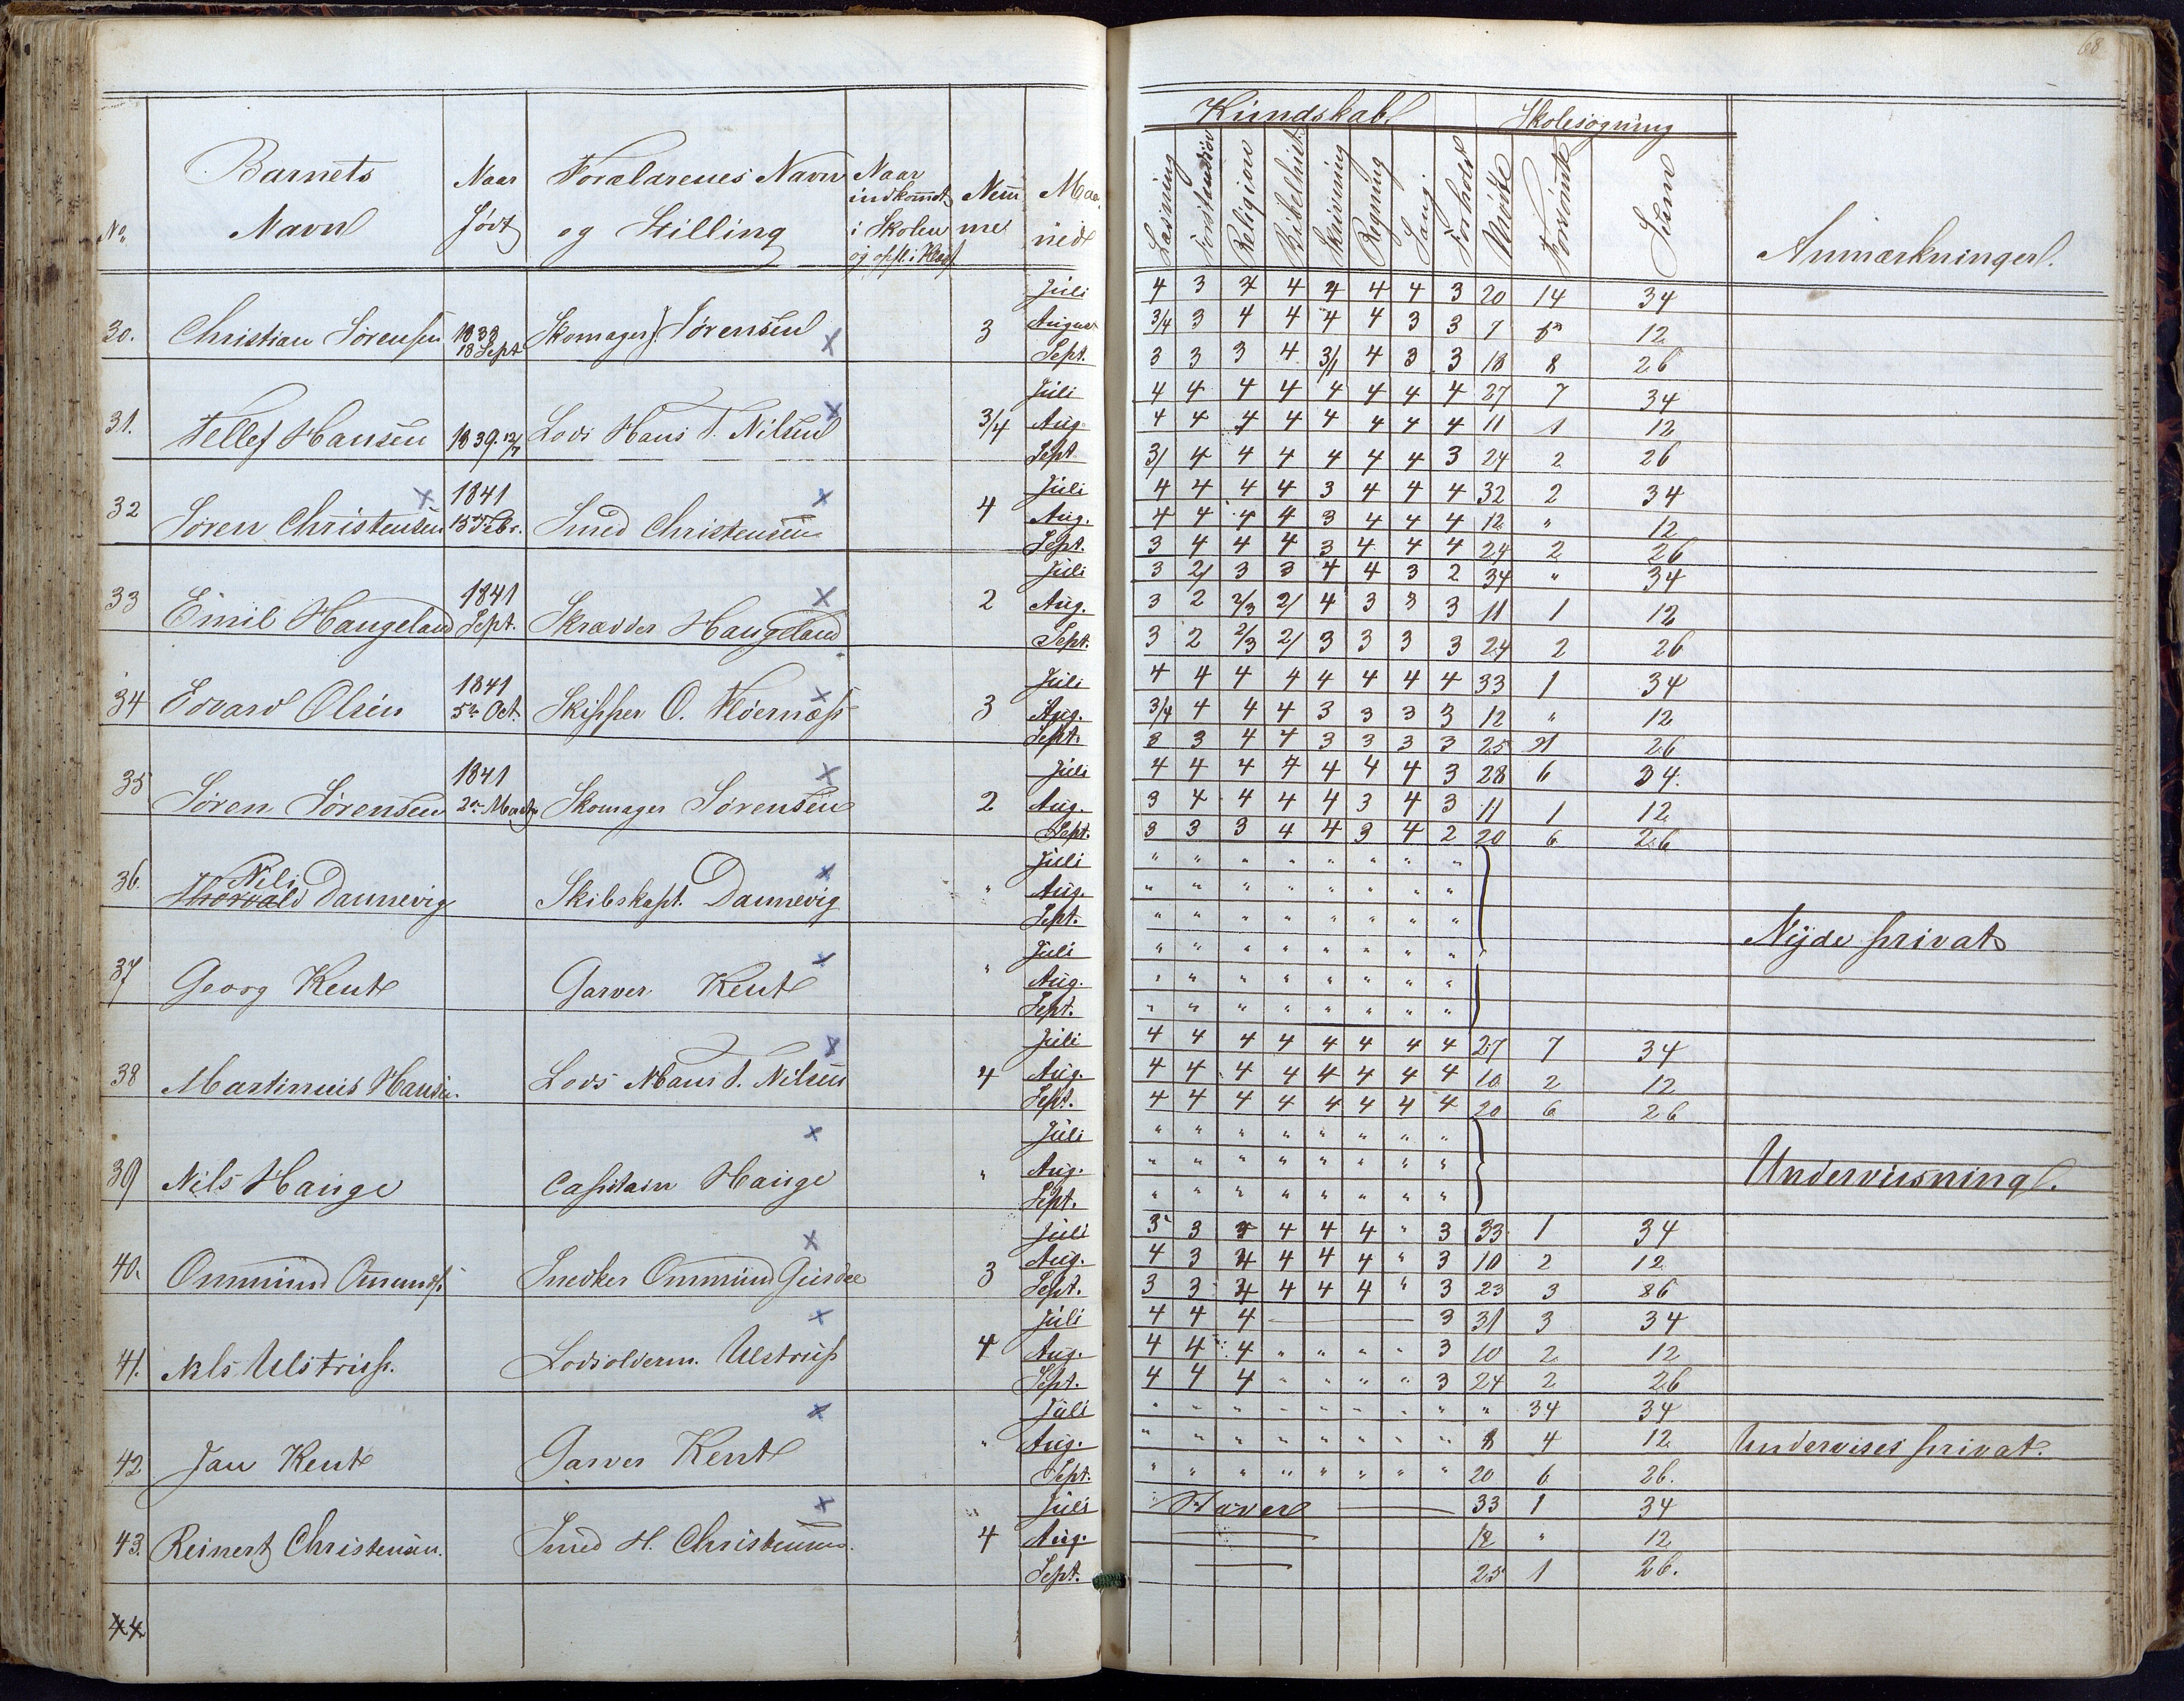 68
Kundskab. Skolesøgning
No. Barnets Navn | Naar Født | Forældrenes Navn og Stilling | Naar indkommet i Skolen | Nemme | Maaned | Læsning | Religion | Skrivning | Regning | Sang. | Forhold | Mødte | Forsømte | Sum | Anmærkninger.
30. Christian Sørensen 1838 18 Sept Skomager J. Sørensen 3 Juli 4 3 4 4 4 4 4 3 20 14 34
August 3/4 3 4 4 4 4 3 3 7 12
Sept. 3 3 3 4 4 3 3 18 8 26
31. Tellef Hansen 1839 Lods Hans T. Nilsen 3/4 Juli 4 4 4 4 4 4 4 4 27 7 34
Aug. 4 4 4 4 4 4 4 4 11 1 12
Sept 4 4 4 4 4 4 3 24 2 26
32 Søren Christensen 1841 15de Febr. Smed Christensen 4 Juli 4 4 4 4 3 4 4 4 32 2 34
Aug. 4 4 4 4 3 4 4 4 12 " 12
Sept. 3 4 4 4 3 4 4 4 24 2 26
33 Emil Haugeland 1841 Sept. Skrædder Haugeland 2 Juli 3 2/ 3 3 4 4 3 2 34 " 34
Aug. 3 2 2/3 2/ 4 3 3 3 11 1 12
Sept. 3 2 2/3 2/ 3 3 3 3 24 2 26
34 Edvard Olsen 1841 5te Oct. Skipper O. 3 Juli 4 4 4 4 4 4 4 4 33 1 34
Aug. 3/4 4 4 4 3 3 3 3 12 " 12
Sept. 3 3 4 4 3 3 3 3 25 1 26
35 Søren Sørensen 1841 Skomager Sørensen 2 Juli 4 4 4 4 4 4 4 3 28 6 34.
Aug. 3 4 4 4 4 3 4 3 11 1 12
Sept. 3 3 3 4 4 3 4 2 20 6 26
36. Thorvald Nils Dannevig Skibskapt. Dannevig " Juli " " " " " " " "
Aug. " " " " " " " "
Sept. " " " " " " " "
Nyde privat
37 Georg Kent Garver Kent " Juli " " " " " " " "
Aug. " " " " " " " "
Sept. " " " " " " " "
38 Martinius Hansen. Lods Hans T. Nilsen 4 Juli 4 4 4 4 4 4 4 4 27 7 34
Aug. 4 4 4 4 4 4 4 4 10 2 12
Sept. 4 4 4 4 4 4 4 4 20 6 26
39 Nils Hauge Capitain Hauge " Juli " " " " " " " "
Aug. " " " " " " " "
Underviisning.
Sept. " " " " " " " "
40. Ommund Omunds. Snedker Ommund 3 Juli 3 3 4 4 4 " 3 33 1 34
Aug. 4 3 4 4 4 4 " 3 10 2 12
Sept. 3 3 4 4 4 4 " 3 23 3 26
41. Nils Ulstrup. Lodsolderm. Ulstrup 4 Juli 4 4 4 3 31 3 34
Aug. 4 4 4 " " " " 3 10 2 12
Sept. 4 4 4 " " " " 3 24 2 26
42 Jan Kent Garver Kent " Juli " " " " " " " " " 34 34
Aug. " " " " " " " " 8 4 12 Undervises privat.
Sept. " " " " " " " " 20 6 26.
43. Reinert Christensen. Smed H. Christensen. 4 Juli 33 1 34
Aug. 12 " 12
Sept. 25 1 26.
44